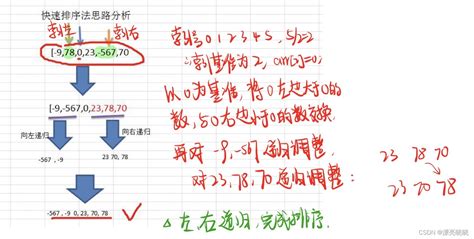 快速排序法思路分析
[-9,78,0,23,-567,70
[-9,-567,0,23,78,70
向左递归
向右递归
-567 , -9
23 70, 78
-567, -9 0, 23, 70, 78
索引 0 1 2 3 4 5, 5/2=2
∴索引基准为 2, arr[2]=0,
以 0 为基准, 将 0 左边大于0的
数, 与 0 右边小于0的数交换.
再对 -9, -567 递归调整,
对 23, 78, 70 递归调整:
23 78 70
23 70 78
△ 左, 右递归, 完成排序.